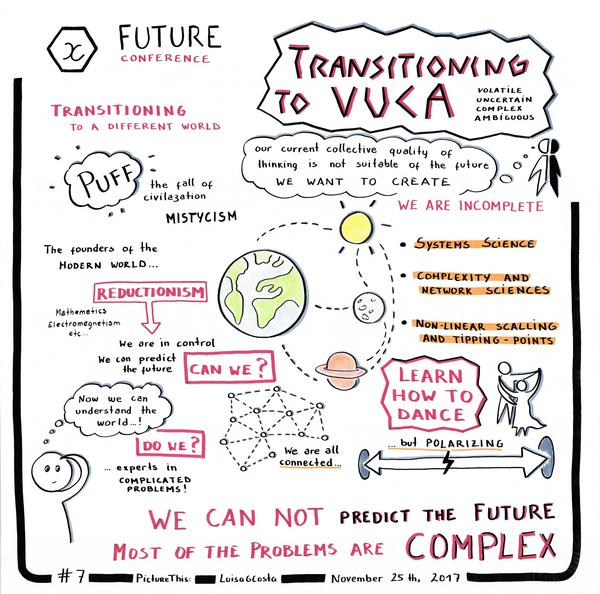 x
FUTURE
CONFERENCE
TRANSITIONING
TO VUCA
VOLATILE
UNCERTAIN
COMPLEX
AMBIGUOUS
TRANSITIONING
TO A DIFFERENT WORLD
our current collective quality of
thinking is not suitable of the future
WE WANT TO CREATE
PUFF
the fall of
civilazation
MISTYCISM
WE ARE INCOMPLETE
The founders of the
MODERN WORLD...
SYSTEMS SCIENCE
COMPLEXITY AND
NETWORK SCIENCES
NON-LINEAR SCALLING
AND TIPPING-POINTS
REDUCTIONISM
Mathematics
Electromagnetism
etc...
We are in control
We can predict
the future
CAN WE?
LEARN
HOW TO
DANCE
Now we can
understand the
world...!
DO WE?
... experts in
COMPLICATED
PROBLEMS!
We are all
connected...
...but POLARIZING
WE CAN NOT PREDICT THE FUTURE
MOST OF THE PROBLEMS ARE COMPLEX
#7 PictureThis: LuisaGCosta November 25th, 2017